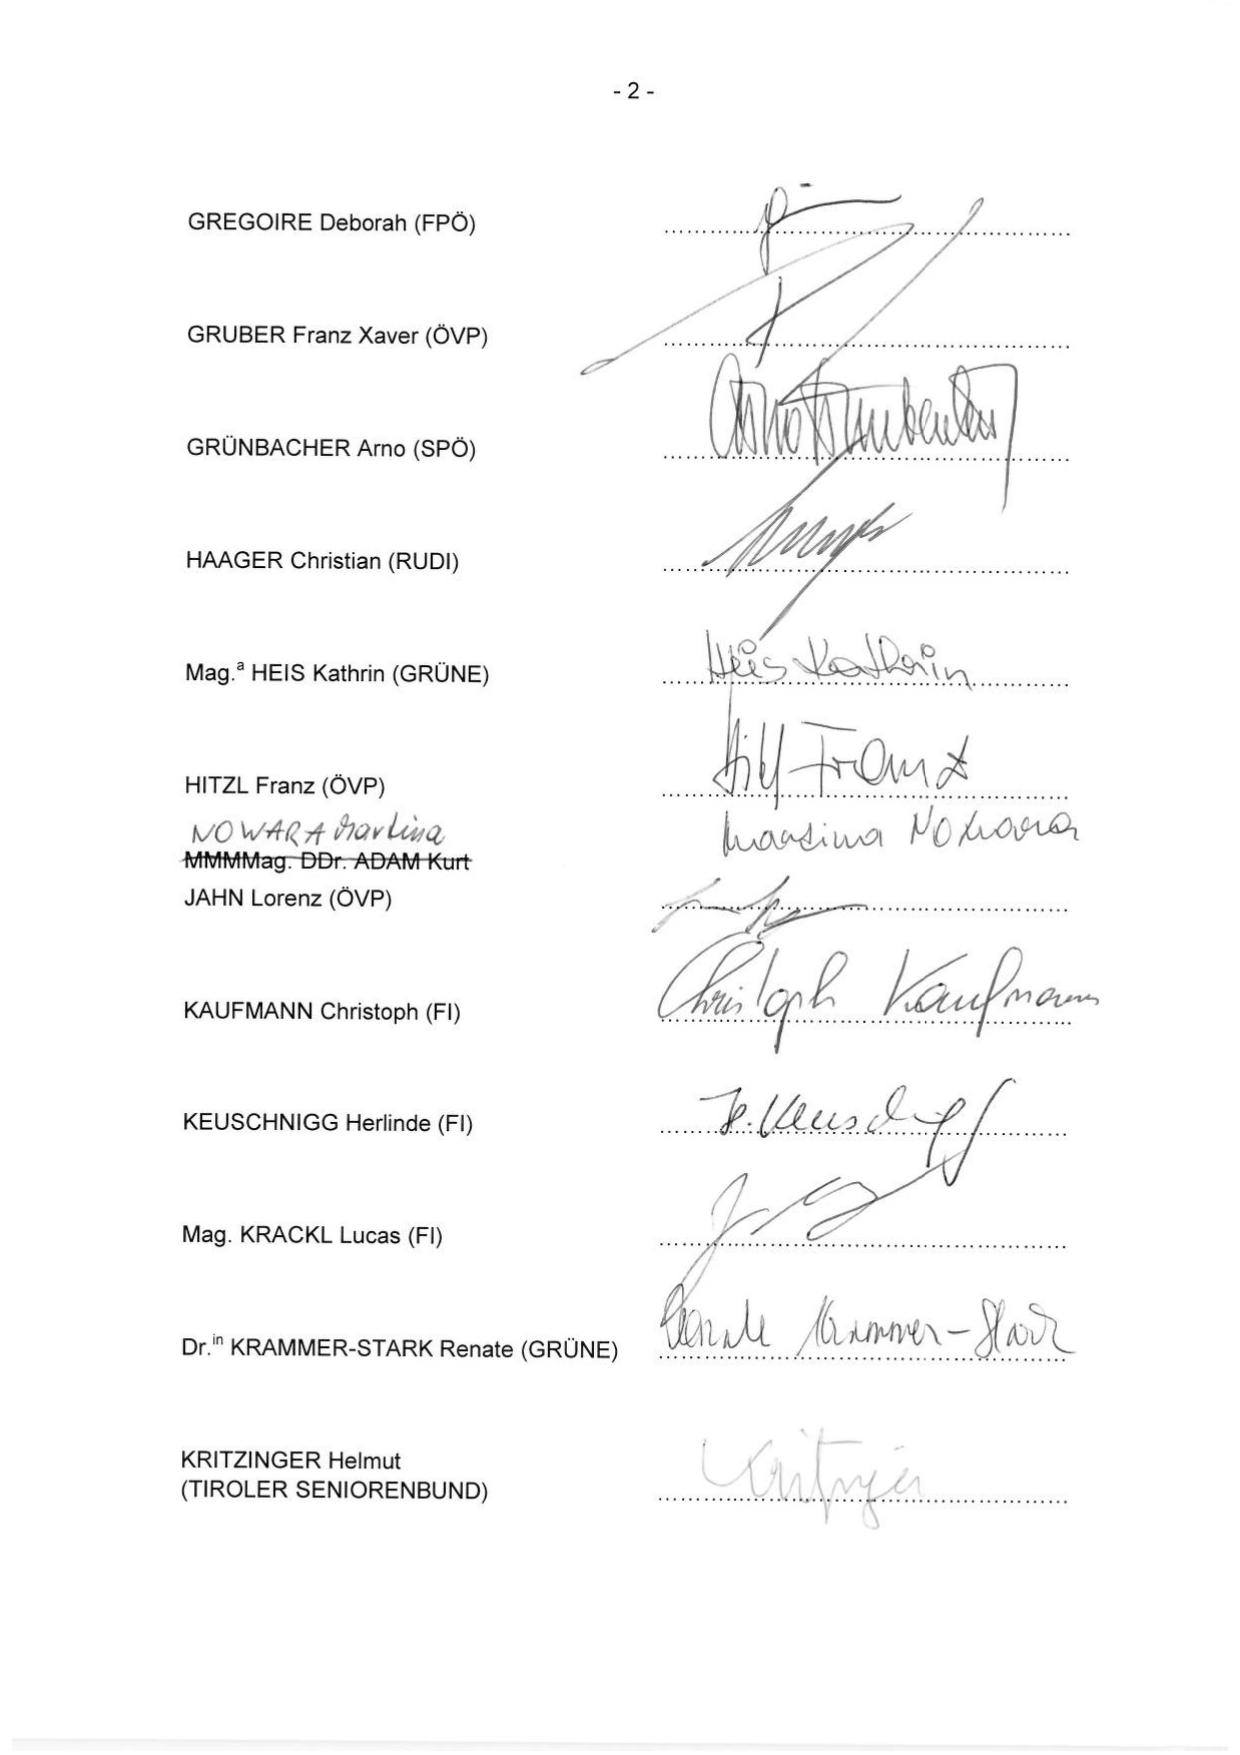 - 2 -
GREGOIRE Deborah (FPÖ)
GRUBER Franz Xaver (ÖVP)
GRÜNBACHER Arno (SPÖ)
HAAGER Christian (RUDI)
Mag.ª HEIS Kathrin (GRÜNE) Heis Kathrin
HITZL Franz (ÖVP) Hitzl Franz
NOWARA Martina Martina Nowara
MMMMag. DDr. ADAM Kurt
JAHN Lorenz (ÖVP)
KAUFMANN Christoph (FI) Christoph Kaufmann
KEUSCHNIGG Herlinde (FI) H. Keuschnigg
Mag. KRACKL Lucas (FI)
Dr.in KRAMMER-STARK Renate (GRÜNE) Renate Krammer-Stark
KRITZINGER Helmut
(TIROLER SENIORENBUND) Kritzinger